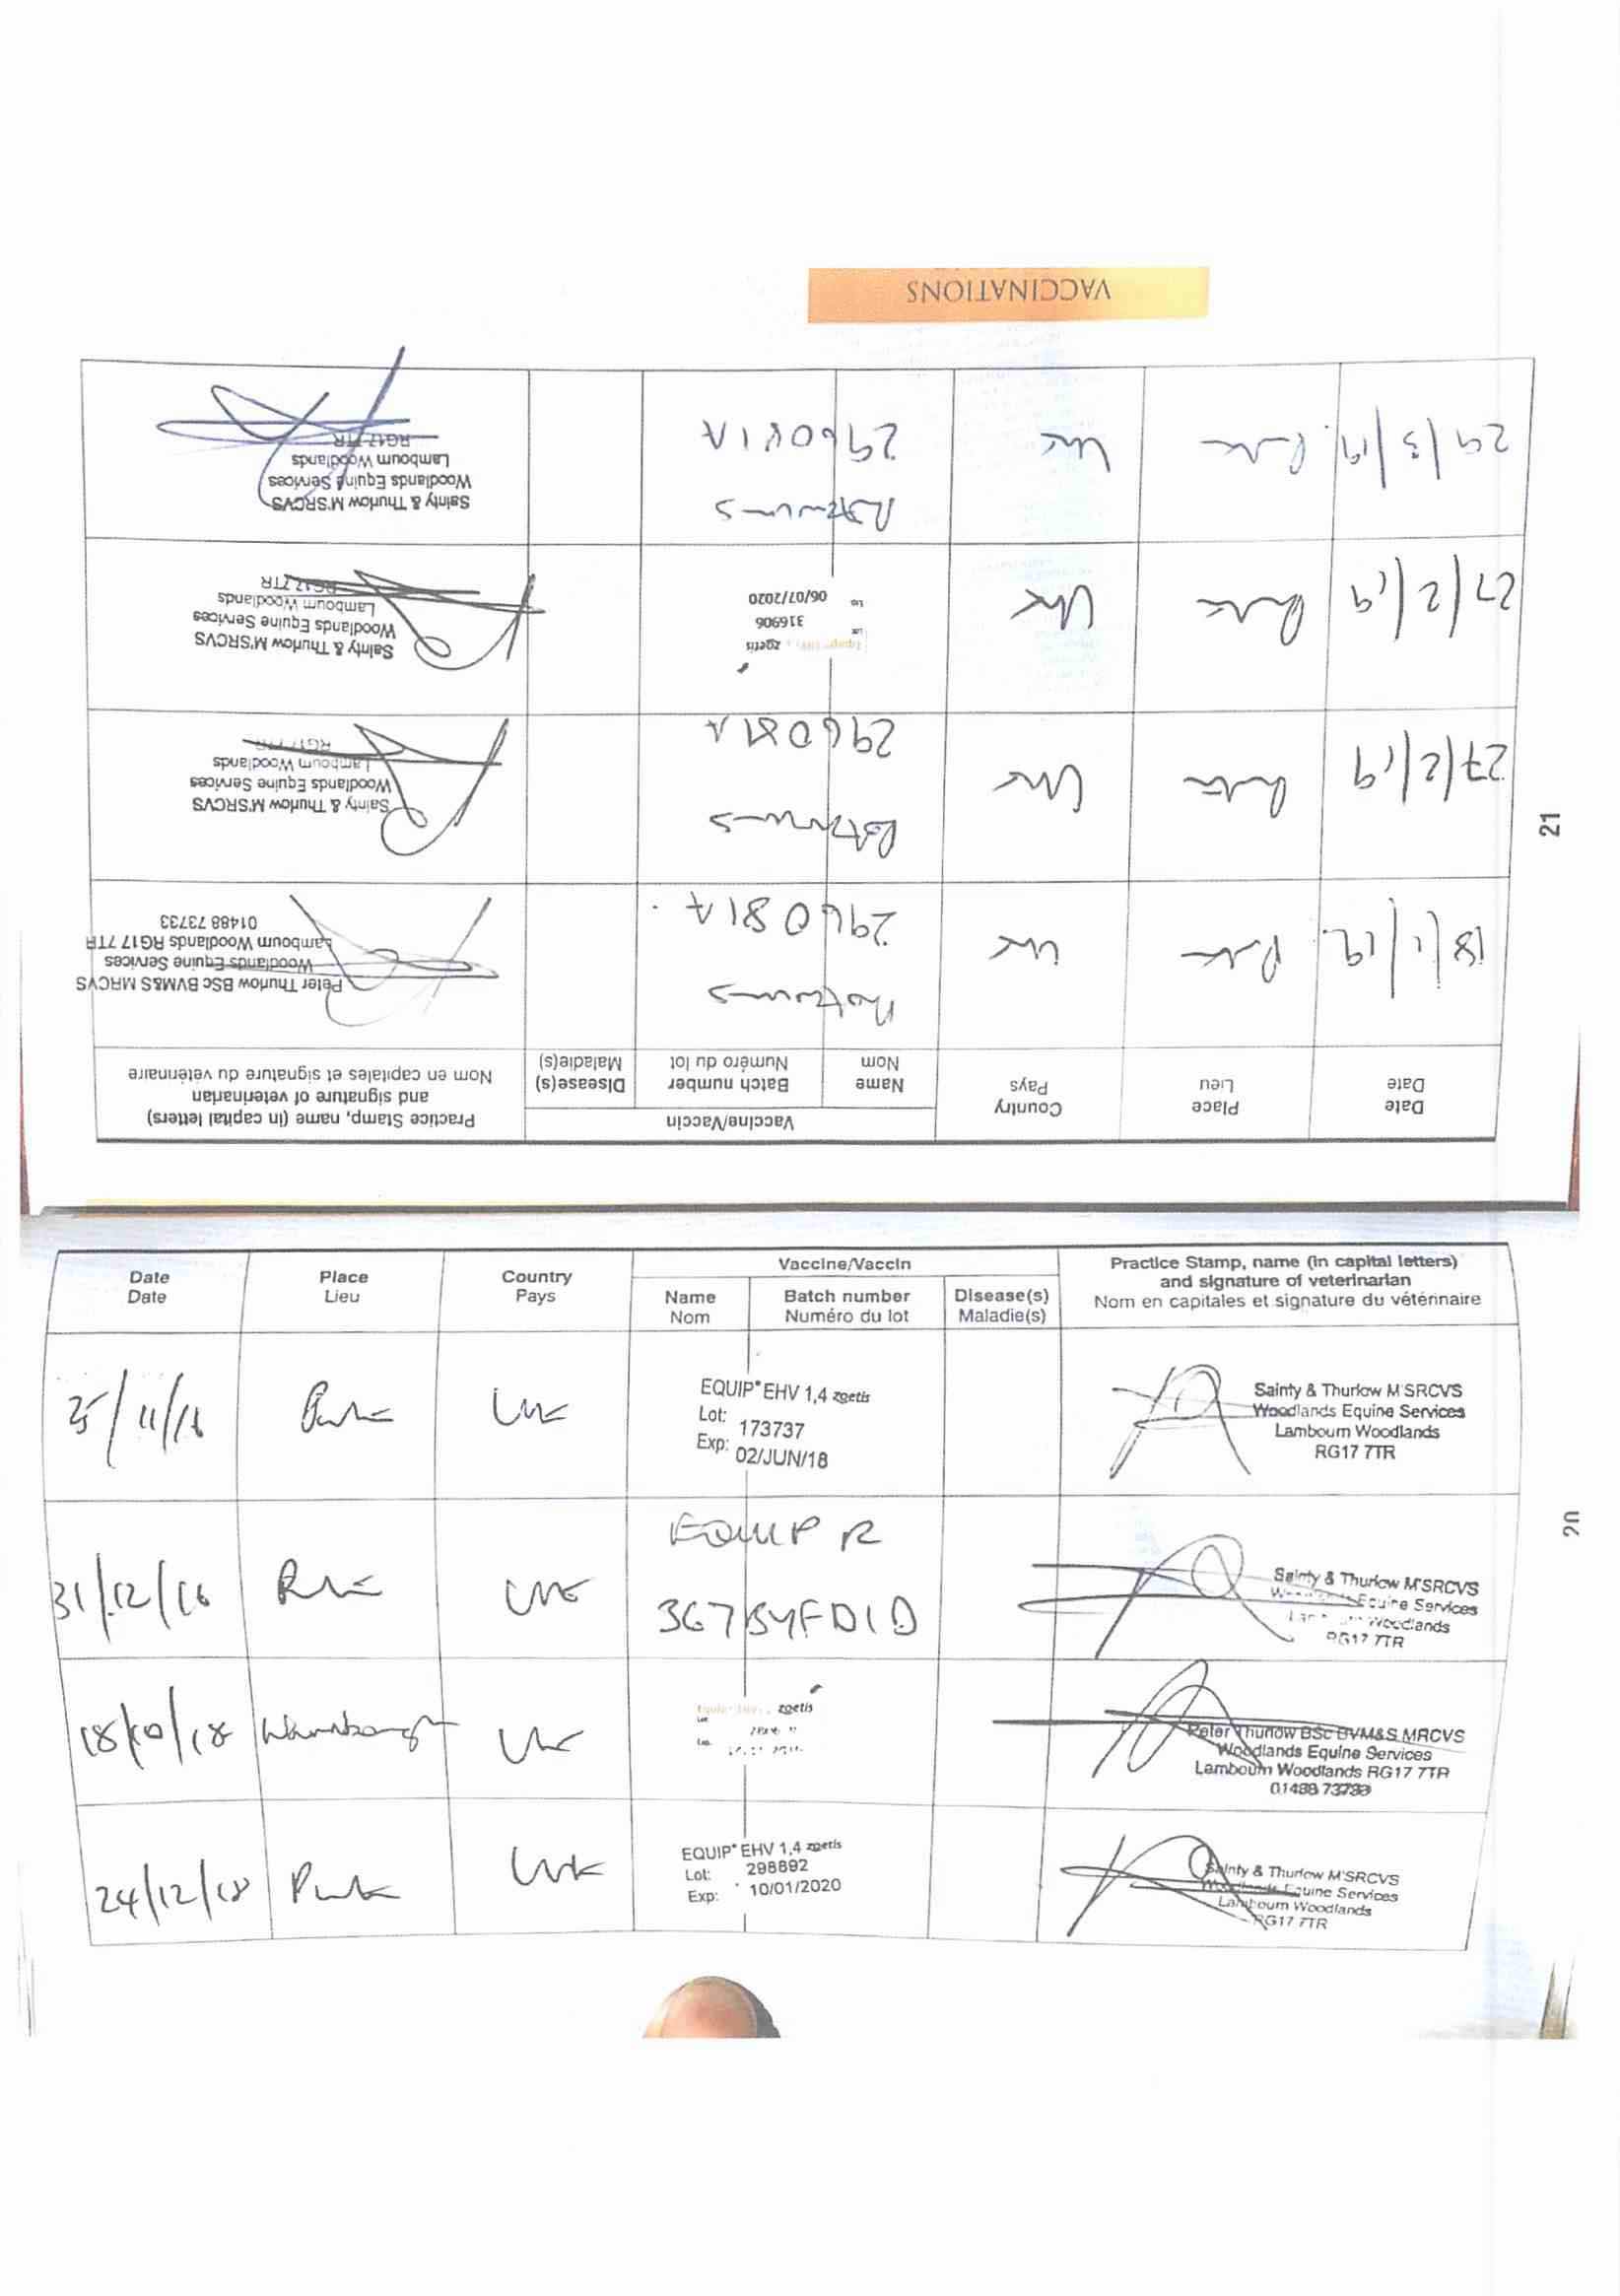 Date
Date
Place
Lieu
Country
Pays
Vaccine/Vaccin
Name
Nom
Batch number
Numéro du lot
Disease(s)
Maladie(s)
Practice Stamp, name (in capital letters)
and signature of veterinarian
Nom en capitales et signature du vétérinaire
25/11/16
UK
EQUIP EHV 1,4 zoetis
Lot: 173737
Exp: 02/JUN/18
Sainty & Thurlow M'SRCVS
Woodlands Equine Services
Lambourn Woodlands
RG17 7TR
31/12/16
UK
EQUIP R
Sainty & Thurlow M'SRCVS
Equine Services
Woodlands
RG17 7TR
18/10/18
UK
zoetis
Peter Thurlow BSc BVM&S MRCVS
Woodlands Equine Services
Lambourn Woodlands RG17 7TR
01488 73733
24/12/18
UK
EQUIP EHV 1,4 zoetis
Lot: 298892
Exp: 10/01/2020
Sainty & Thurlow M'SRCVS
Woodlands Equine Services
Lambourn Woodlands
RG17 7TR
20
Date
Date
Place
Lieu
Country
Pays
Vaccine/Vaccin
Name
Nom
Batch number
Numéro du lot
Disease(s)
Maladie(s)
Practice Stamp, name (in capital letters)
and signature of veterinarian
Nom en capitales et signature du vétérinaire
18/1/19
UK
296081A
Peter Thurlow BSc BVM&S MRCVS
Woodlands Equine Services
Lambourn Woodlands RG17 7TR
01488 73733
27/2/19
UK
296081A
Sainty & Thurlow M'SRCVS
Woodlands Equine Services
Lambourn Woodlands
RG17 7TR
27/2/19
UK
zoetis
316906
06/07/2020
Sainty & Thurlow M'SRCVS
Woodlands Equine Services
Lambourn Woodlands
RG17 7TR
29/3/19
UK
296081A
Sainty & Thurlow M'SRCVS
Woodlands Equine Services
Lambourn Woodlands
RG17 7TR
21
VACCINATIONS